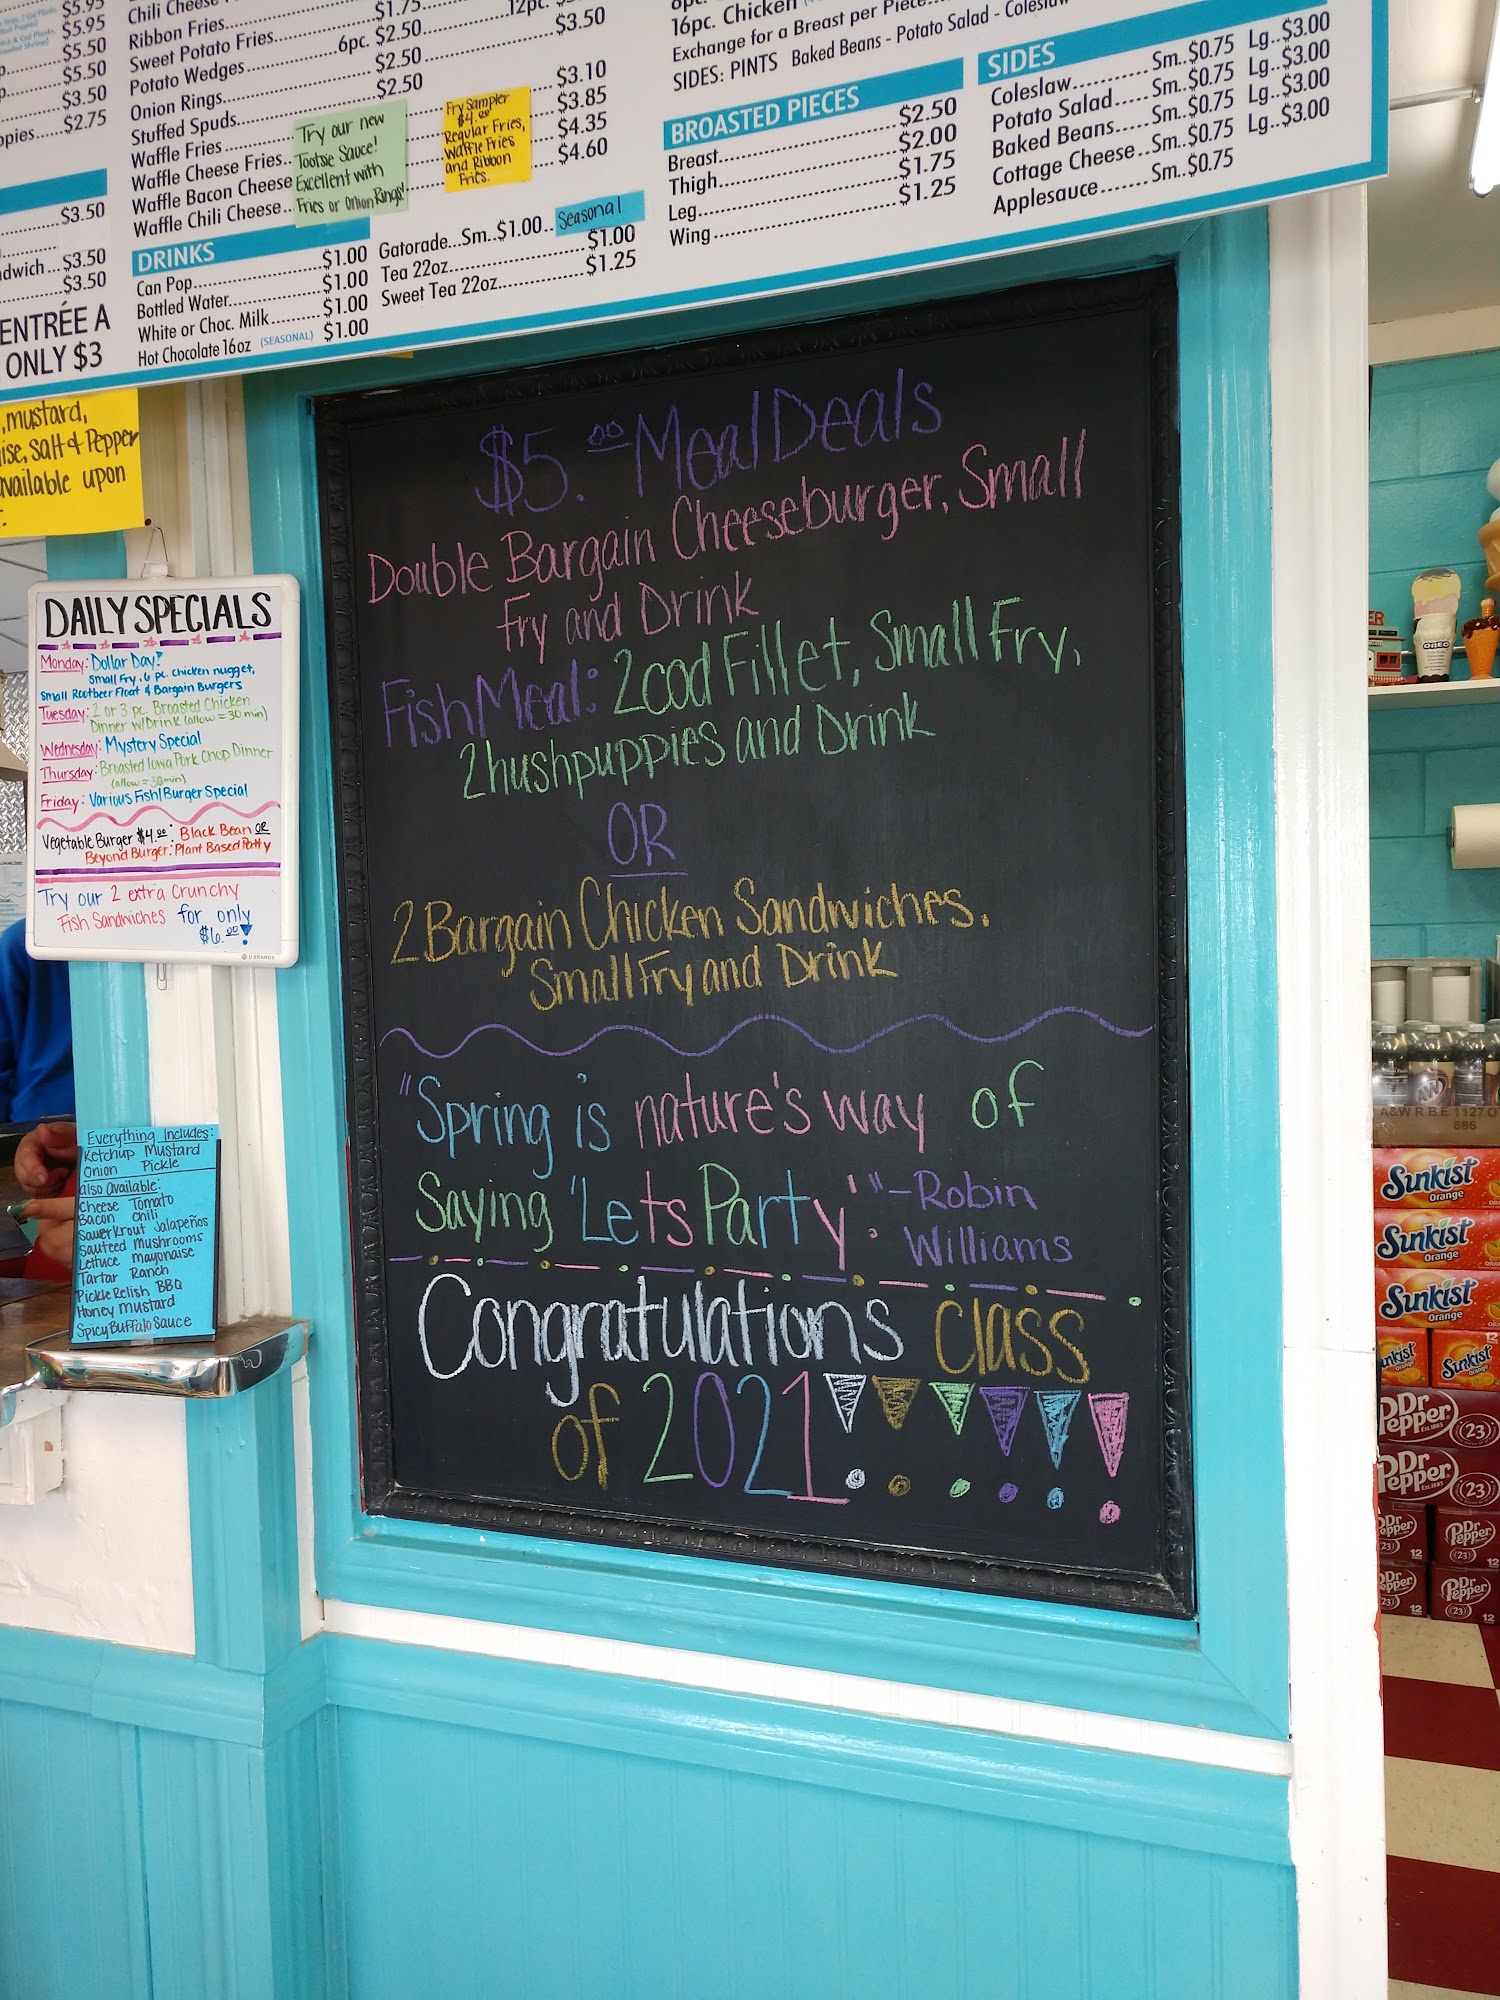 $5.95
$5.95
$5.50
$5.50
$3.50
$2.75
$3.50
$3.50
$3.50
ENTRÉE A
ONLY $3
Chili Cheese
Ribbon Fries
$1.75
Sweet Potato Fries
12pc.
Potato Wedges 6pc. $2.50 $3.50
Onion Rings $2.50
Stuffed Spuds $2.50
Waffle Fries $3.10
Waffle Cheese Fries $3.85
Waffle Bacon Cheese $4.35
Waffle Chili Cheese $4.60
Try our new
Tootsie Sauce!
Excellent with
Fries or Onion Rings!
Fry Sampler
$4.00
Regular Fries,
Waffle Fries
and Ribbon
Fries.
DRINKS
Can Pop $1.00
Bottled Water $1.00
White or Choc. Milk $1.00
Hot Chocolate 16oz (SEASONAL) $1.00
Gatorade...Sm..$1.00.. Seasonal
Tea 22oz $1.00
Sweet Tea 22oz $1.25
16pc. Chicken
Exchange for a Breast per Piece
SIDES: PINTS Baked Beans - Potato Salad - Coleslaw
BROASTED PIECES
Breast $2.50
Thigh $2.00
Leg $1.75
Wing $1.25
SIDES
Coleslaw Sm..$0.75 Lg..$3.00
Potato Salad Sm..$0.75 Lg..$3.00
Baked Beans Sm..$0.75 Lg..$3.00
Cottage Cheese Sm..$0.75 Lg..$3.00
Applesauce Sm..$0.75
,mustard,
Salt & Pepper
available upon
DAILY SPECIALS
Monday: Dollar Day!
Small Fry, 6 pc. chicken nugget,
Small Rootbeer Float & Bargain Burgers
Tuesday: 2 or 3 pc. Broasted Chicken
Dinner w/Drink (allow ≈ 30 min)
Wednesday: Mystery Special
Thursday: Broasted Iowa Pork Chop Dinner
(allow ≈ 30min)
Friday: Various Fish/Burger Special
Vegetable Burger $4.00: Black Bean OR
Beyond Burger: Plant Based Patty
Try our 2 extra Crunchy
Fish Sandwiches for only
$6.00!
U BRANDS
Everything Includes:
Ketchup Mustard
Onion Pickle
also available:
Cheese Tomato
Bacon Chili
Sauerkrout Jalapeños
Sauteed Mushrooms
Lettuce Mayonaise
Tartar Ranch
Pickle Relish BBQ
Honey Mustard
Spicy Buffalo Sauce
$5.00 Meal Deals
Double Bargain Cheeseburger, Small
Fry and Drink
Fish Meal: 2 cod Fillet, Small Fry,
2 hushpuppies and Drink
OR
2 Bargain Chicken Sandwiches.
Small Fry and Drink
"Spring is nature's way of
Saying 'Lets Party'." -Robin
Williams
Congratulations class
of 2021!!!!!!
OREO
A&W R.B.E 1127
886
Sunkist
Orange
Sunkist
Orange
Sunkist
Orange
Sunkist
Dr Pepper
23
Dr Pepper
23
Dr Pepper
23
12
Dr Pepper
23
12